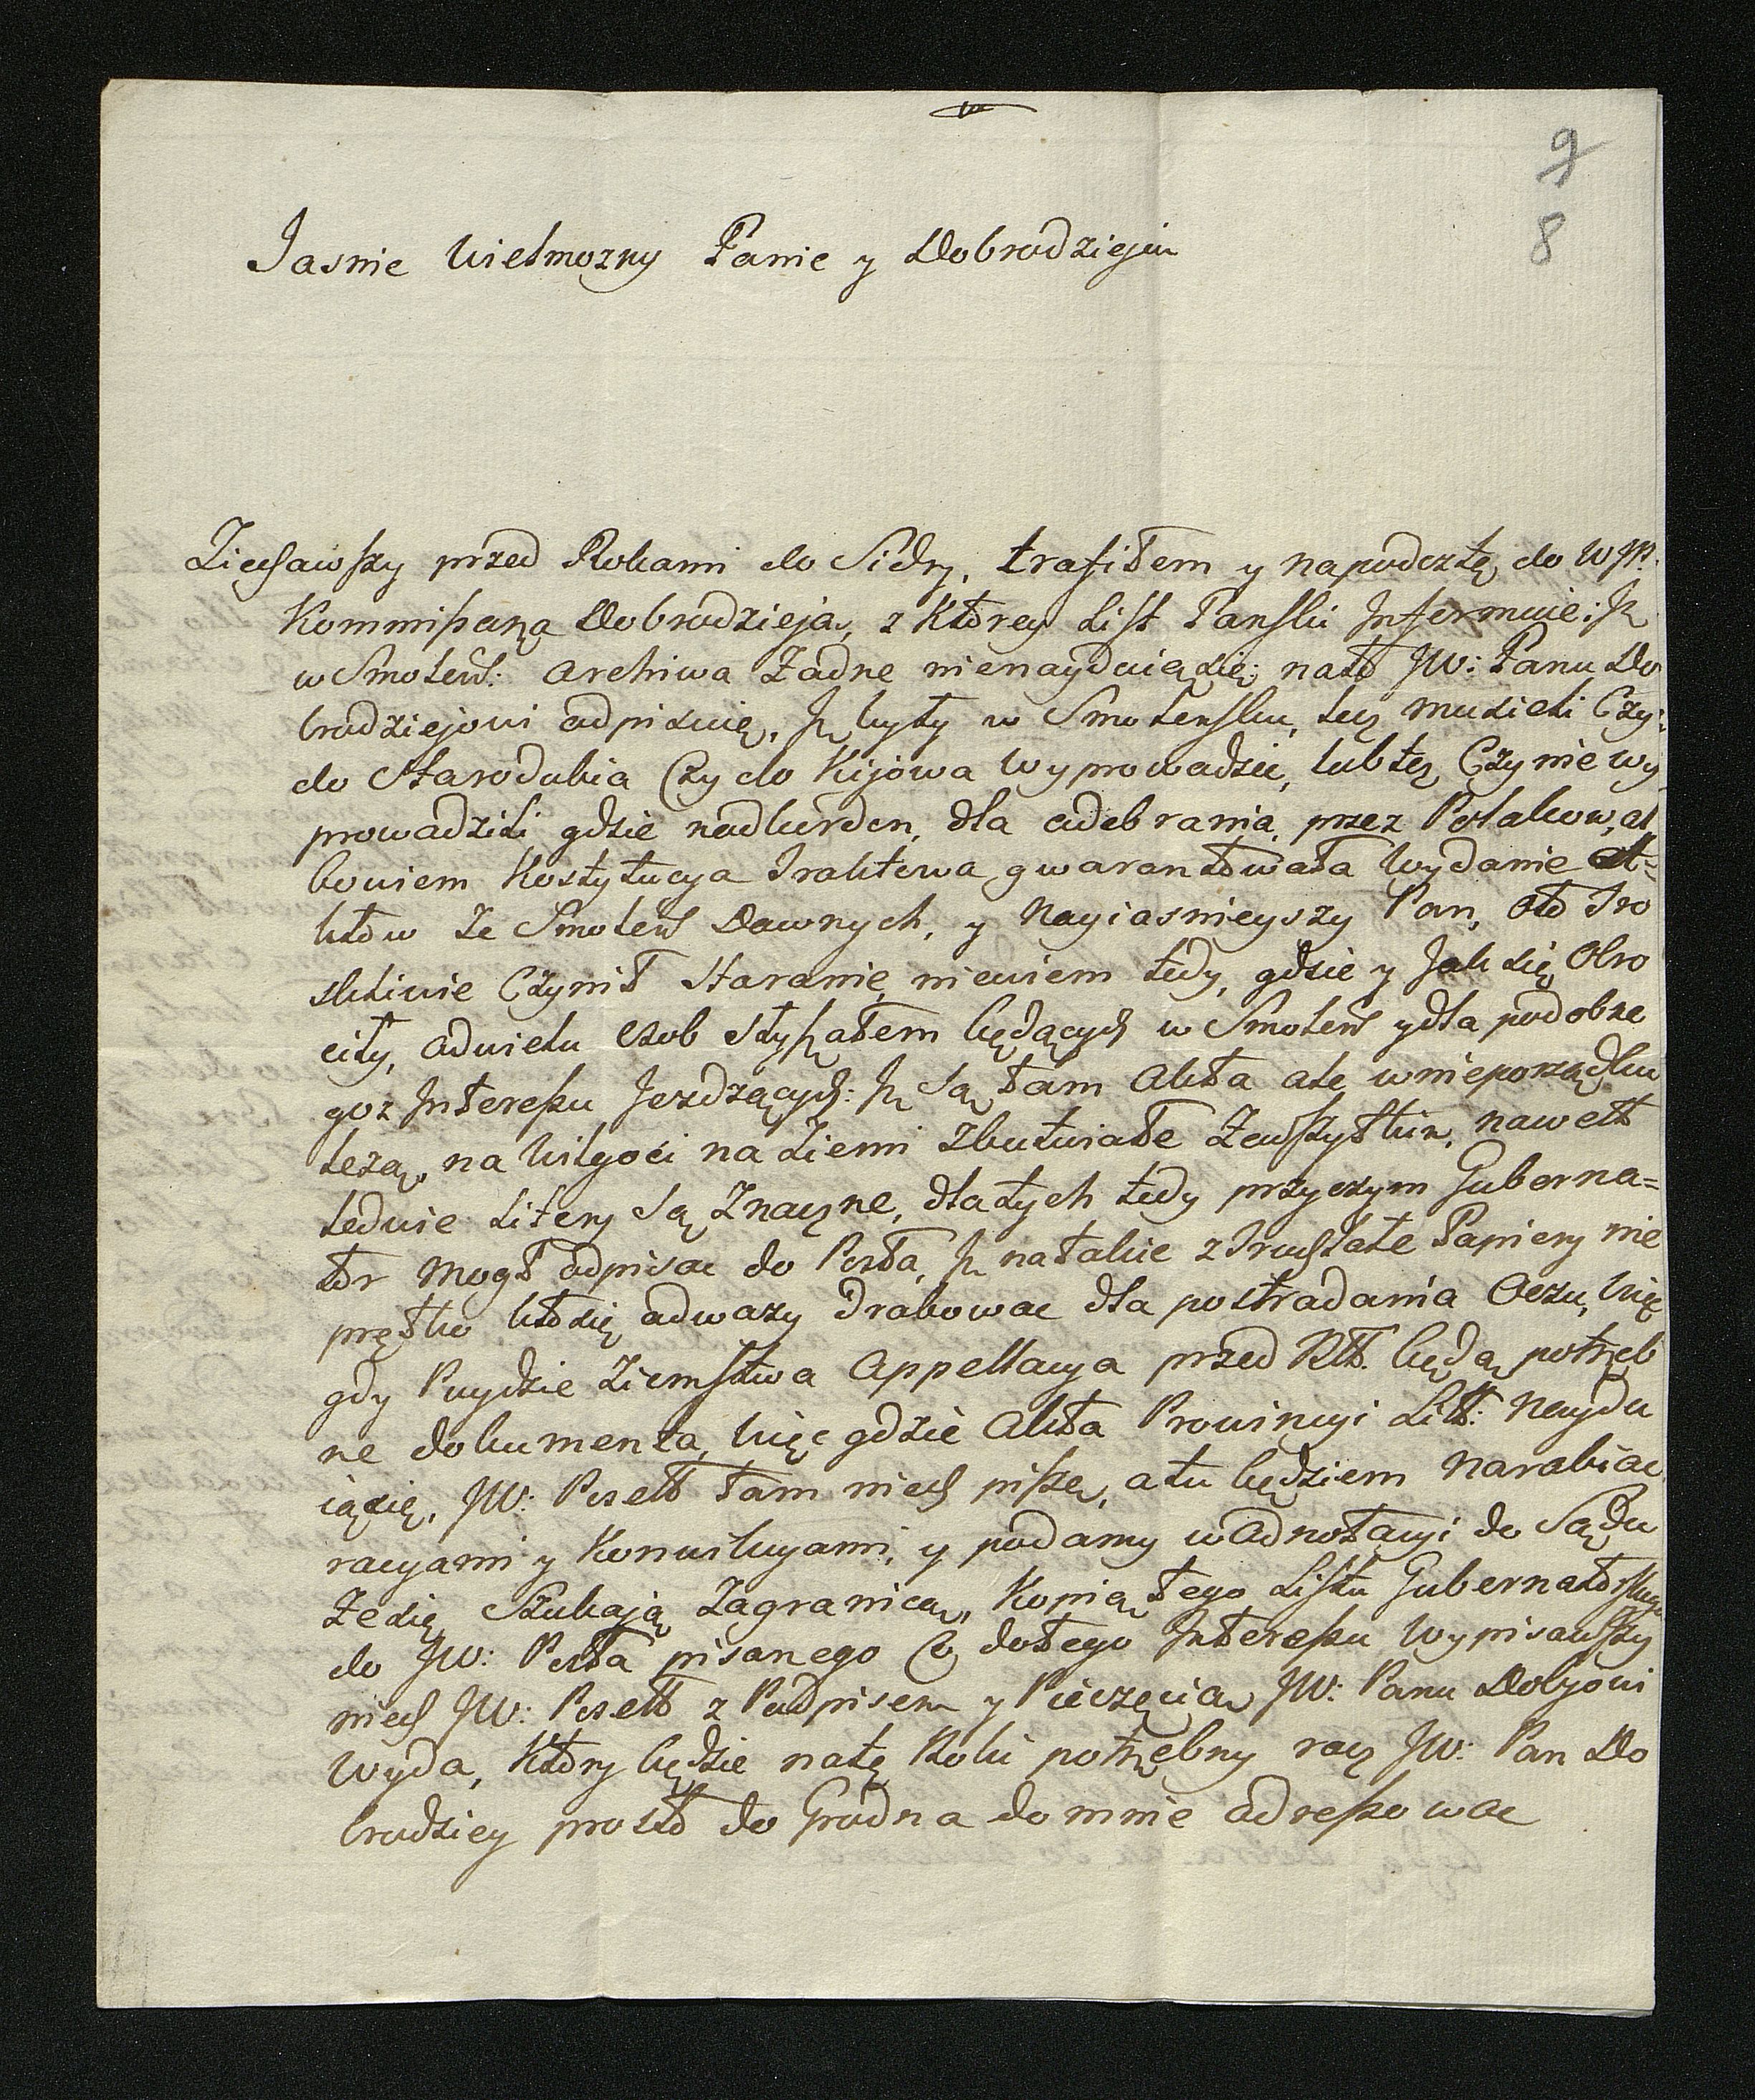 9
8
Jasnie Wielmozny Panie y Dobrodzieju
Ziechawszy przed Rokami do Sidry, trafiłem y napodcztę do WJP.
Kommissarza Dobrodzieja, z ktorey List Panski Informuie: Iż
w Smoleń: Archiwa Żadne nienayduiąsię; nato JW: Panu Do
brodziejowi odpisuię, Iż były w Smolensku, lecz musieli Czy
do Staroduba Czy do Kijowa wyprowadzic, lub też Czy nie wy
prowadzili gdzie nadkordon, dla odebrania przez Polakow, al
bowiem Kostytucya Traktowa gwarantowała Wydanie Ak=
ktow ze Smoleń Dawnych, y Nayiasnieyszy Pan, oto Tro
skliwie Czynił Staranie, niewiem tedy, gdzie y Jak się Obro
ciły, odwielu osob słyszałem będących w Smoleń ydla podobne
goz Interessu Jezdzących: Iż Są tam Akta ale wnieporządku
lezą, na Wilgoci na Ziemi zbutwiałe Zewszystkim, nawet
ledwie Litery Są Znaczne, dlatych tedy przyczyn Guberna=
tor Mogł odpisac do Posła, Iż natakie ztruchłałe Papiery nie
prętko ktosię odwazy drabowac dla postradania Oczu, Więc
gdy Puydzie Ziemstwa Appellacya przed będą potrzeb
ne dokumenta, Więc gdzie Akta Prowincyi Litt: Naydu
iąsię, JW: Poseł tam niech pisze, atu będziem Narabiac
racyami y Konwikcyami, y podamy wadnotacyi do Sądu
Zesię Szukają Zagranicą, Kopią tego Listu Gubernatorskiego
do JW: Posła pisanego Co dotego Interessu Wypisawszy
niech JW: Poseł z Podpisem y Pieczęcią JW: Panu Dobjowi
Wyda, Ktory będzie natę Roki potrzebny racz JW: Pan Do
brodziey prosto do Grodna do mnie adressowac